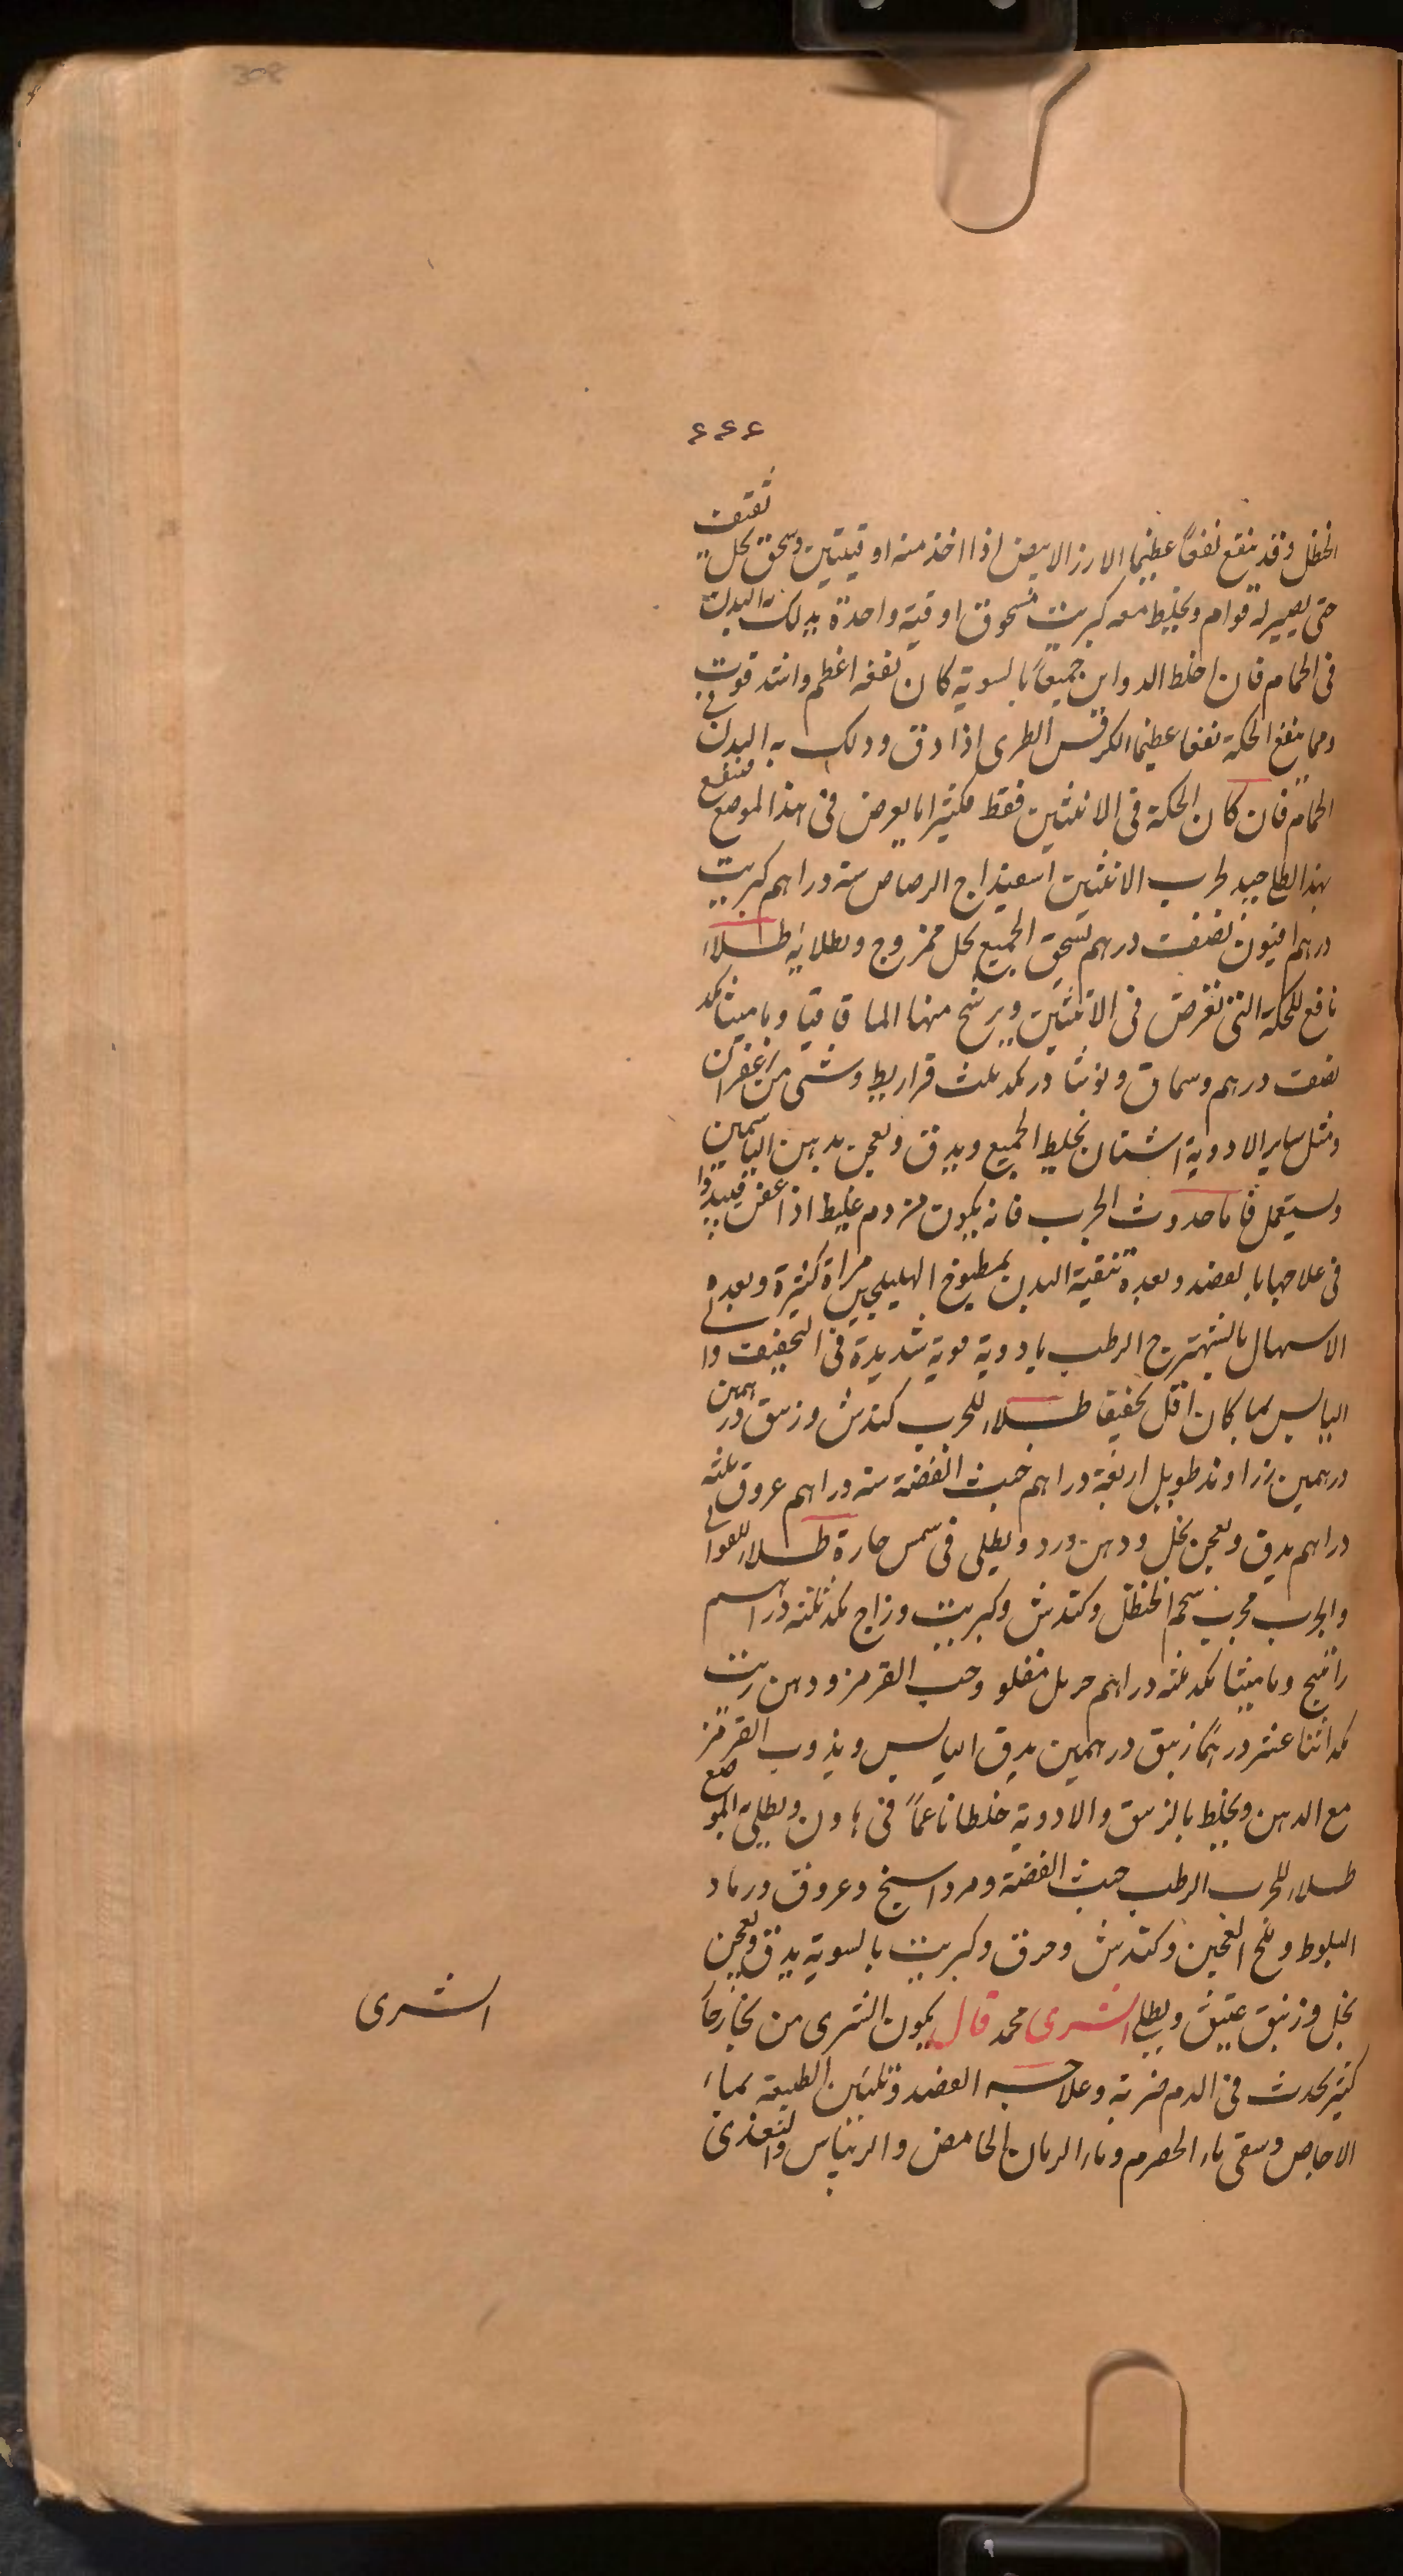 308
٤٤٤
الحنظل وقد ينفع نفعاً عظيما الارز الابيض اذا اخذ منه اوقيتين وسحق بخل ثقيف
حتى يصير له قوام ويخلط معه كبريت مسحوق اوقية واحدة يدلك به البدن
فى الحمام فان اخلط الدواين جميعاً بالسوية كان نفعه اعظم واشد قوت
ومما ينفع الحكة نفعا عظيما الكرفس الطرى اذا دق ودلك به البدن فى
الحمام فان كان الحكة فى الانثيين فقط فكثيرا ما يعرض فى هذا الموضع فينفع
بهذا الطلا جيد لجرب الانثيين اسفيداج الرصاص ستة دراهم كبريت
درهم افيون نصف درهم تسحق الجميع بخل ممزوج ويطلا به طلاء
نافع للحكة التى تعرض فى الانثيين ويرشح منها الما قاقيا وماميثا بكد
نصف درهم وسماق ونوشادر بكد ثلث قراريط وشى من زعفران
ومثل ساير الادوية اشنان يخلط الجميع ويدق ويعجن بدهن الياسمين
ويستعمل فاما حدوث الجرب فانه يكون من دم غليظ اذا عفن فيبدوا
فى علاجها بالفصد وبعده تنقية البدن بمطبوخ الهليلجين مراة كثيرة وبعده
الاسهال بالشهترج الرطب بادوية قوية شديدة فى التجفيف وا فى
اليابس بما كان اقل تجفيفا طلاء للجرب كندش وزيبق درهمين
درهمين زراوند طويل اربعة دراهم خبث الفضة ستة دراهم عروق ثلثه
دراهم يدق ويعجن بخل ودهن ورد ويطلى فى شمس حارة طلاء للقوابى
والجرب مجرب شحم الحنظل وكندش وكبريت وزاج بكد ثلثة دراهم
راتينج وماميثا بكد ثلثه دراهم حرمل مقلو وحب القرمز ودهن زيت
بكد اثنا عشر درهما زيبق درهمين يدق اليابس ويذوب القرمز
مع الدهن ويخلط بالزيبق والادوية خلطا ناعماً فى هاون ويطلى الموضع
طلاء للجرب الرطب خبث الفضة ومرداسنج وعروق ورماد
البلوط وملح العجين وكندش وحرف وكبريت بالسوية يدق ويعجن
بخل وزيبق عتيق ويطلى الشرى محمد قال يكون الشرى من بخار حاد
كثير يحدث فى الدم ضربة وعلاجه الفصد وتليين الطبيعة بماء
الاجاص وسقى ماء الحصرم وماء الرمان الحامض والريباس والتغذى
الشرى